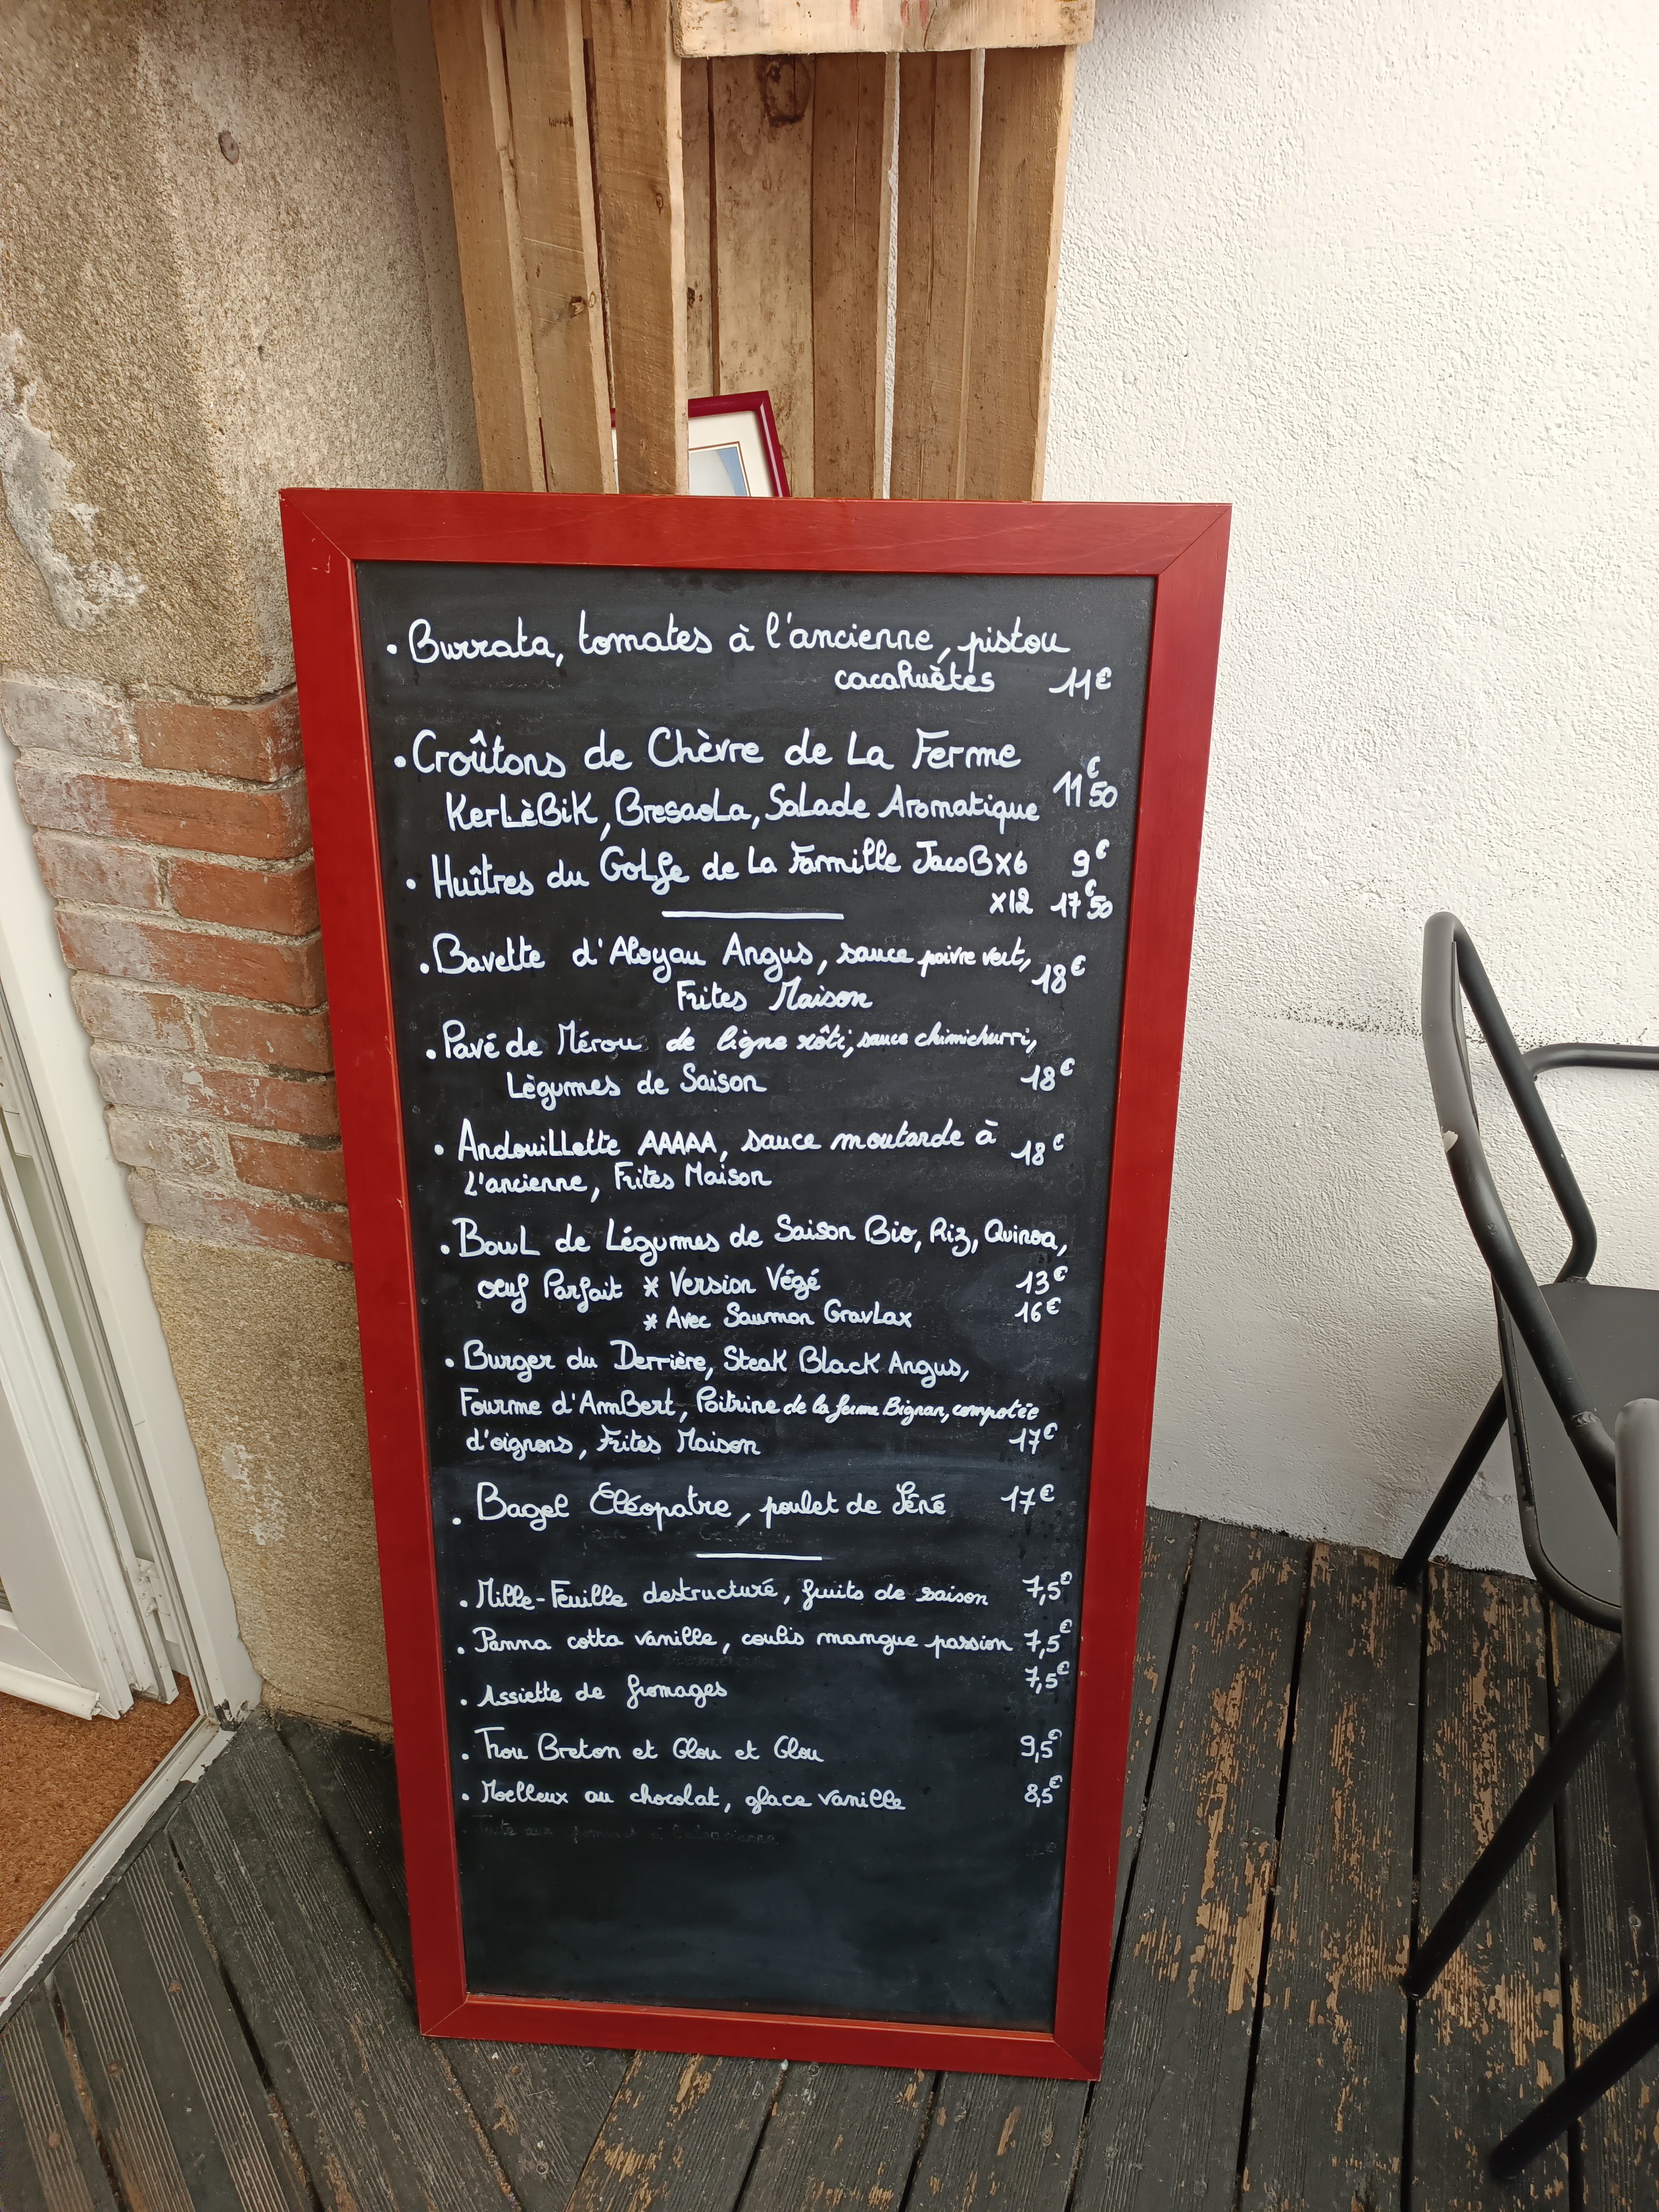 • Burrata, tomates à l'ancienne, pistou
cacahuètes 11€
• Croûtons de Chèvre de La Ferme
KerLèBiK, BresaoLa, SaLade Aromatique 11€50
• Huîtres du GoLfe de La Famille JacoB x6 9€
x12 17€50
• Bavette d'Aloyau Angus, sauce poivre vert, 18€
Frites Maison
• Pavé de Mérou de ligne rôti, sauce chimichurri,
Lègumes de Saison 18€
• AndouiLLette AAAAA, sauce moutarde à 18€
L'ancienne, Frites Maison
• BowL de Légumes de Saison Bio, Riz, Quinoa,
oeuf Parfait * Version Végé 13€
* Avec Saumon GravLax 16€
• Burger du Derrière, Steak BLack Angus,
Fourme d'AmBert, Poitrine de la ferme Bignan, compotée
d'oignons, Frites Maison 17€
• Bagel Cléopatre, poulet de Séné 17€
• Mille-Feuille destructuré, fruits de saison 7,5€
• Panna cotta vanille, coulis mangue passion 7,5€
• Assiette de fromages 7,5€
• Trou Breton et Glou et Glou 9,5€
• Moelleux au chocolat, glace vanille 8,5€